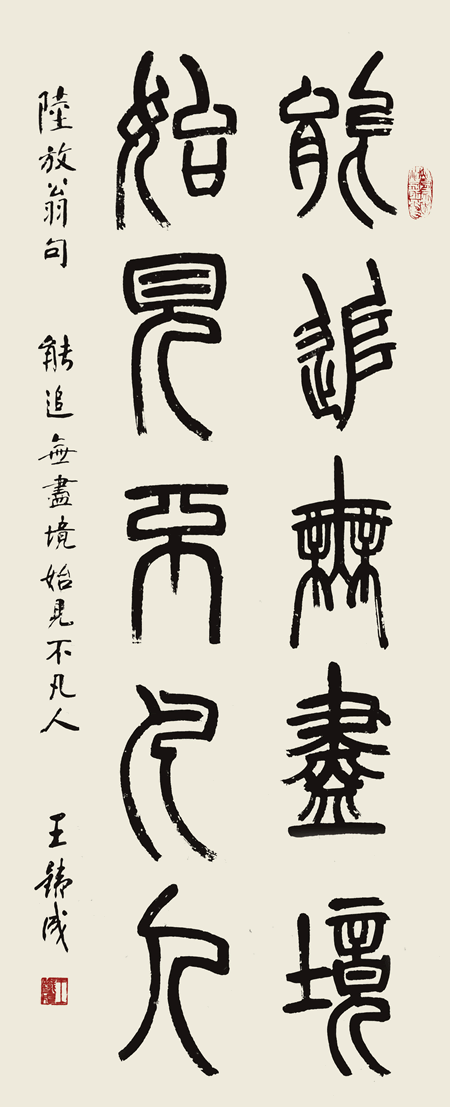 能追無盡境
始見不凡人
陸放翁句 能追無盡境始見不凡人 王鑄成